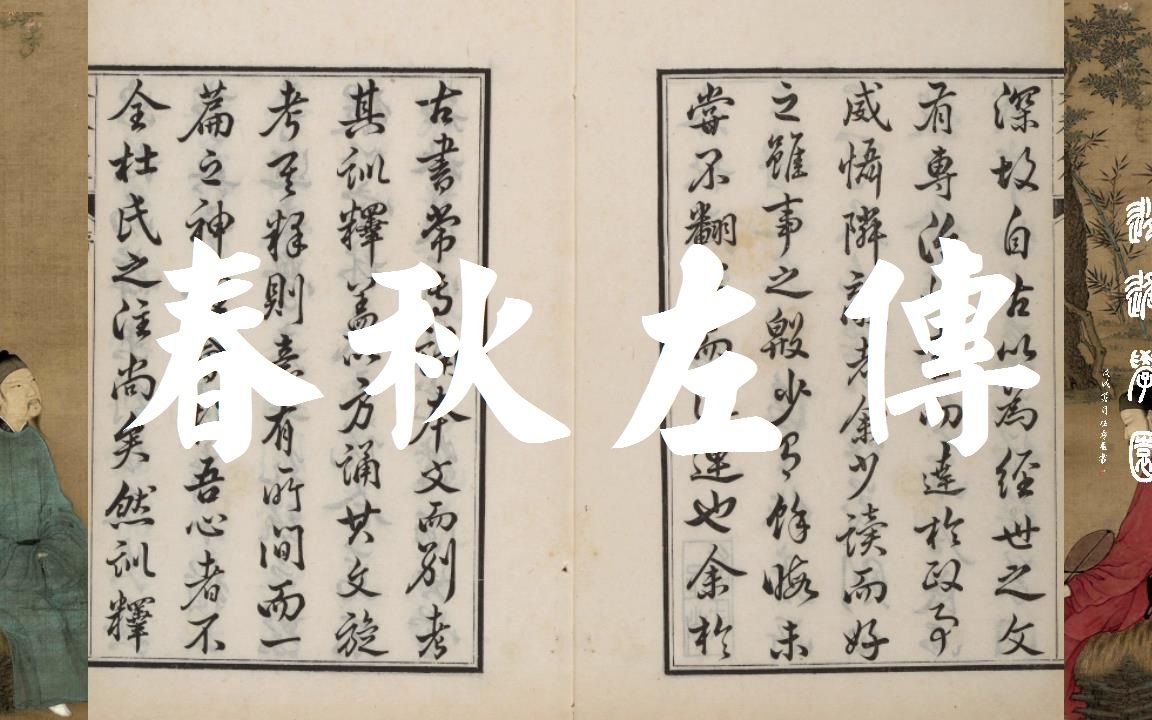 春秋左傳
深故自古以為經世之文
有專治而達於政事
威懾隣者余少讀而好
之雖事之殷少有餘暇未
嘗不翻而也余於
古書常本文而別考
其訓釋蓋以方誦其文旋
考其釋則意有所間而一
篇之神吾心者不
全杜氏之注尚矣然訓釋
學園